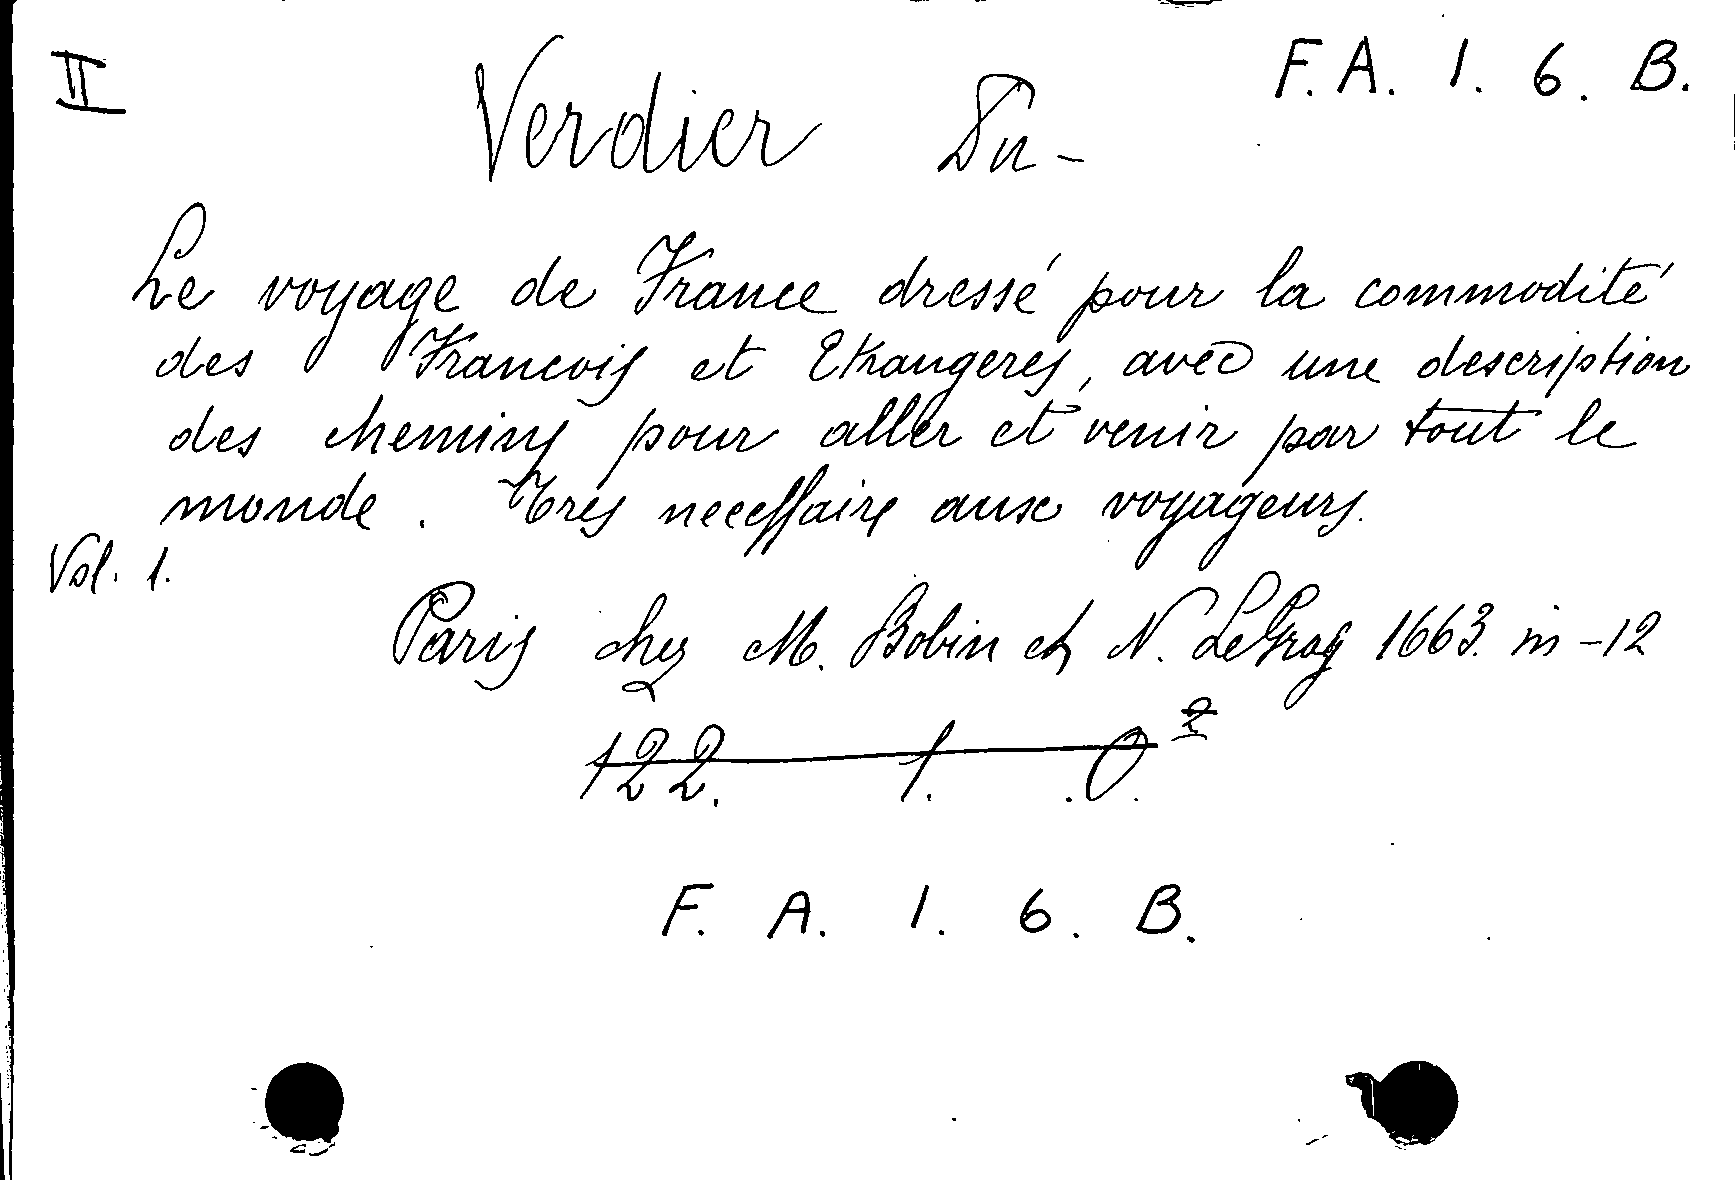 II
F. A. 1. 6. B.
Verdier Du-
Le voyage de France dressé pour la commodité
des Francois et Etrangeres, avec une description
des chemins pour aller et venir par tout le
monde. Tres necessaire aux voyageurs.
Vol. 1.
Paris chez M. Bobin et N. LeGras 1663. in-12
122. 1. 0.
F. A. 1. 6. B.